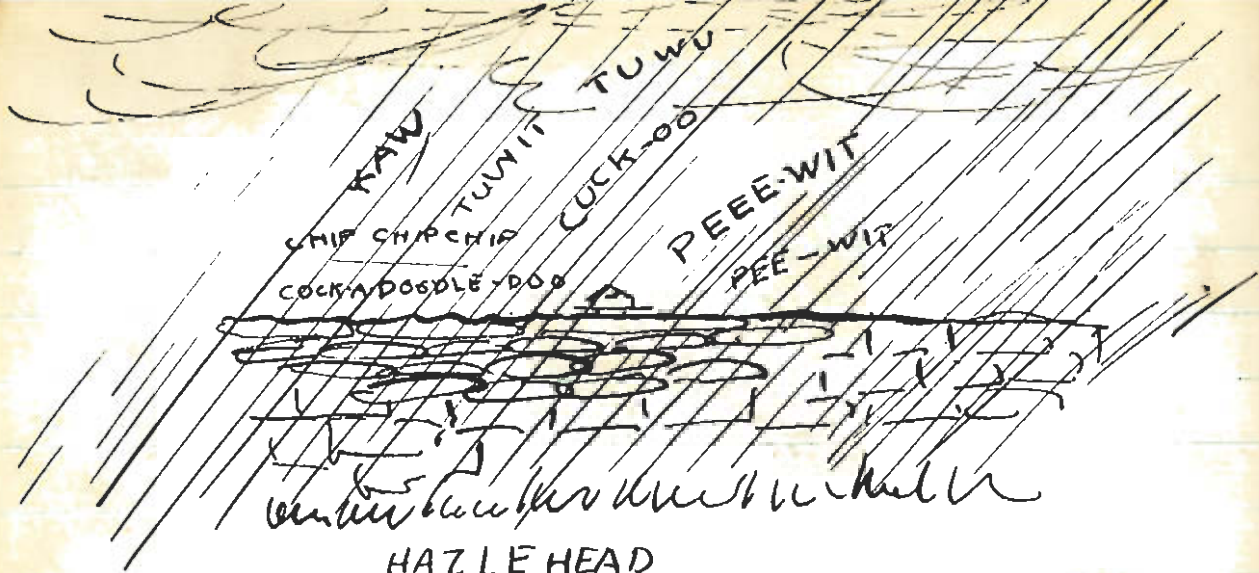 KAW
TUWIT TUWU
CUCK-OO
PEEE-WIT
CHIP CHIP CHIP
PEE-WIT
COCK-A-DOODLE-DOO
HAZLEHEAD